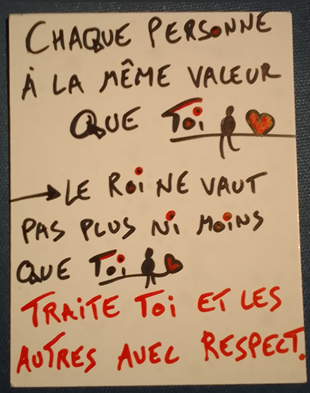 CHAQUE PERSONNE
À LA MÊME VALEUR
QUE Toi
LE Roi NE VAUT
PAS PLUS Ni MoiNS
QUE Toi
TRAITE Toi ET LES
AUTRES AVEC RESPECT.